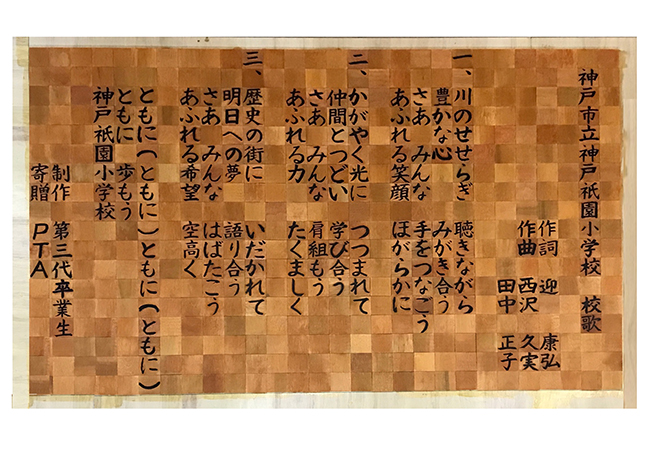 神戸市立神戸祇園小学校　校歌
作詞　迎　康弘
作曲　西沢　久実
田中　正子
一、川のせせらぎ　聴きながら
豊かな心　みがき合う
さあ　みんな　手をつなごう
あふれる笑顔　ほがらかに
二、かがやく光に　つつまれて
仲間とつどい　学び合う
さあ　みんな　肩組もう
あふれる力　たくましく
三、歴史の街に　いだかれて
明日への夢　語り合う
さあ　みんな　はばたこう
あふれる希望　空高く
ともに(ともに)ともに(ともに)
ともに　歩もう
神戸祇園小学校
制作　第三代卒業生
寄贈　PTA